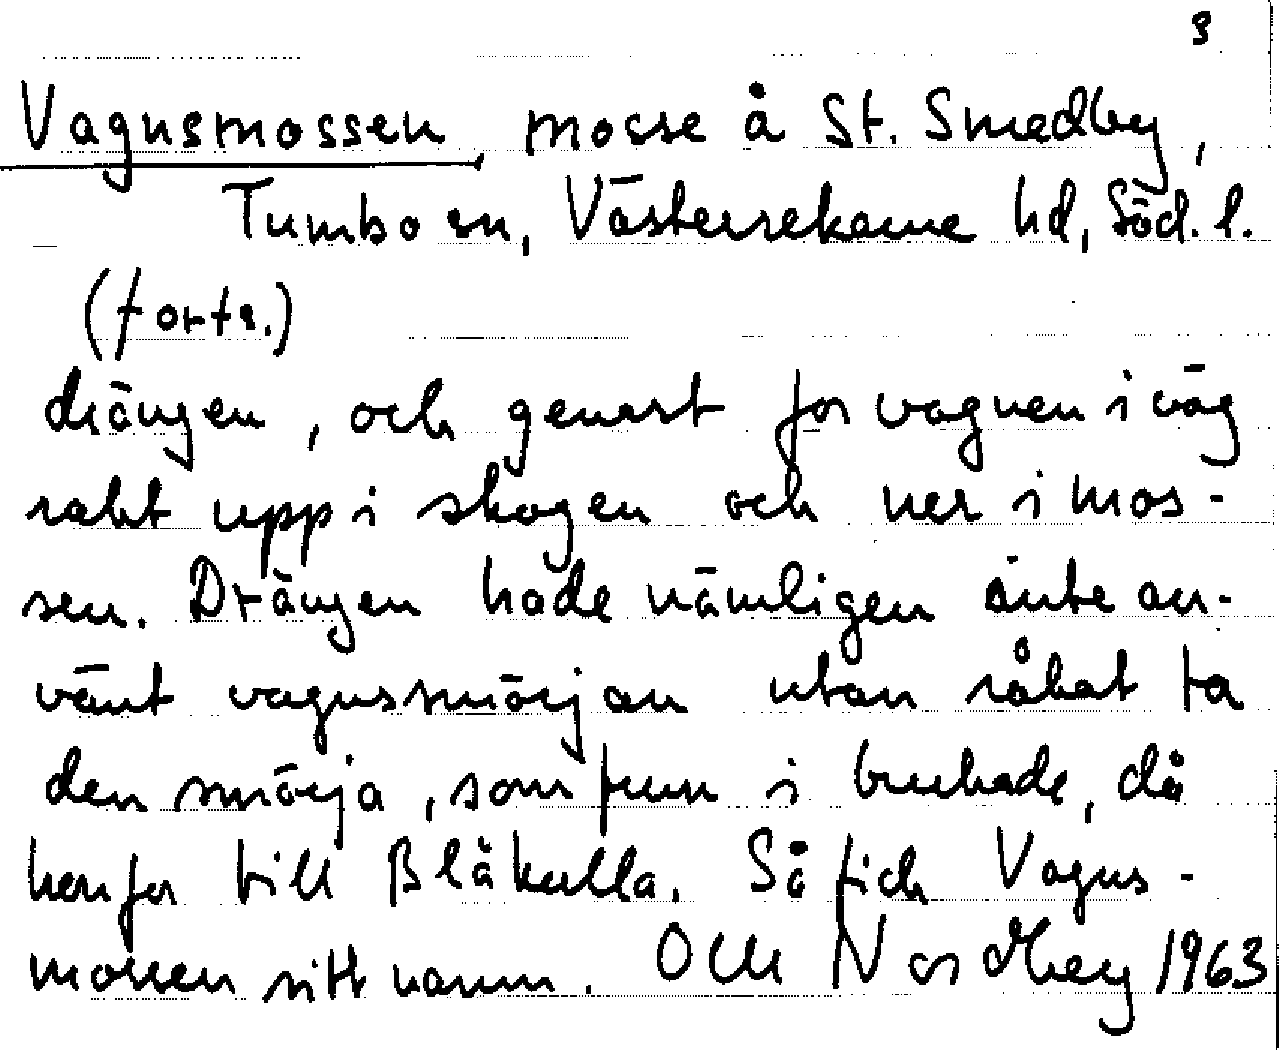 3
Vagnsmossen, mosse å St. Smedby,
Tumbo sn, Västerrekarne hd, Söd. l.
(forts.)
drängen, och genast for vagnen i väg
rakt upp i skogen och ner i mos-
sen. Drängen hade nämligen inte an-
vänt vagnssmörjan utan råkat ta
den smörja, som frun i brukade, då
hon for till Blåkulla. Så fick Vagns-
mossen sitt namn. Olle Nordbey 1963